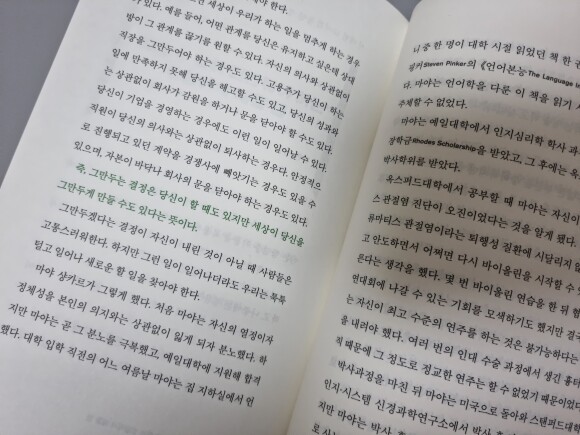 세상이 우리가 하는 일을 멈추게 하는 경우
있다. 예를 들어, 어떤 관계를 당신은 유지하고 싶은데 상대
방이 그 관계를 끊기를 원할 수 있다. 자신의 의사와 상관없이
직장을 그만두어야 하는 경우도 있다. 고용주가 당신이 하는
일에 만족하지 못해 당신을 해고할 수도 있고, 당신의 성과와
는 상관없이 회사가 감원을 하거나 문을 닫아야 할 수도 있다.
당신이 기업을 경영하는 경우에도 이런 일이 일어날 수 있다.
직원이 당신의 의사와는 상관없이 퇴사하는 경우다. 안정적으
로 진행되고 있던 계약을 경쟁사에 빼앗기는 경우도 있을 수
있으며, 자본이 바닥나 회사의 문을 닫아야 하는 경우도 있다.
즉, 그만두는 결정은 당신이 할 때도 있지만 세상이 당신을
그만두게 만들 수도 있다는 뜻이다.
그만두겠다는 결정이 자신이 내린 것이 아닐 때 사람들은
고통스러워한다. 하지만 그런 일이 일어나더라도 우리는 툭툭
털고 일어나 새로운 할 일을 찾아야 한다.
마야 샹카르가 그렇게 했다. 처음 마야는 자신의 열정이자
정체성을 본인의 의지와는 상관없이 잃게 되자 분노했다. 하
지만 마야는 곧 그 분노를 극복했고, 예일대학에 지원해 합격
했다. 대학 입학 직전의 어느 여름날 마야는 집 지하실에서 언
니 중 한 명이 대학 시절 읽었던 책 한 권
핑커Steven Pinker의 《언어본능The Language
다. 마야는 언어학을 다룬 이 책을 읽기
주체할 수 없었다.
마야는 예일대학에서 인지심리학 학사
장학금Rhodes Scholarship을 받았고, 그 후에는 옥스
박사학위를 받았다.
옥스퍼드대학에서 공부할 때 마야는 자신이
스 관절염 진단이 오진이었다는 것을 알게 됐다.
류마티스 관절염이라는 퇴행성 질환에 시달리지 않
고 안도하면서 어쩌면 다시 바이올린을 시작할 수
른다는 생각을 했다. 몇 번 바이올린 연습을 한 뒤
인대회에 나갈 수 있는 기회를 모색하기도 했지만 결국
는 자신이 최고 수준의 연주를 하는 것은 불가능하다는
을 내려야 했다. 여러 번의 인대 수술 과정에서 생긴 흉터
직 때문에 그 정도로 정교한 연주는 할 수 없었기 때문이었다.
박사과정을 마친 뒤 마야는 미국으로 돌아와 스탠퍼드대학
인지·시스템 신경과학연구소에서 박사
지만 마야는 박사